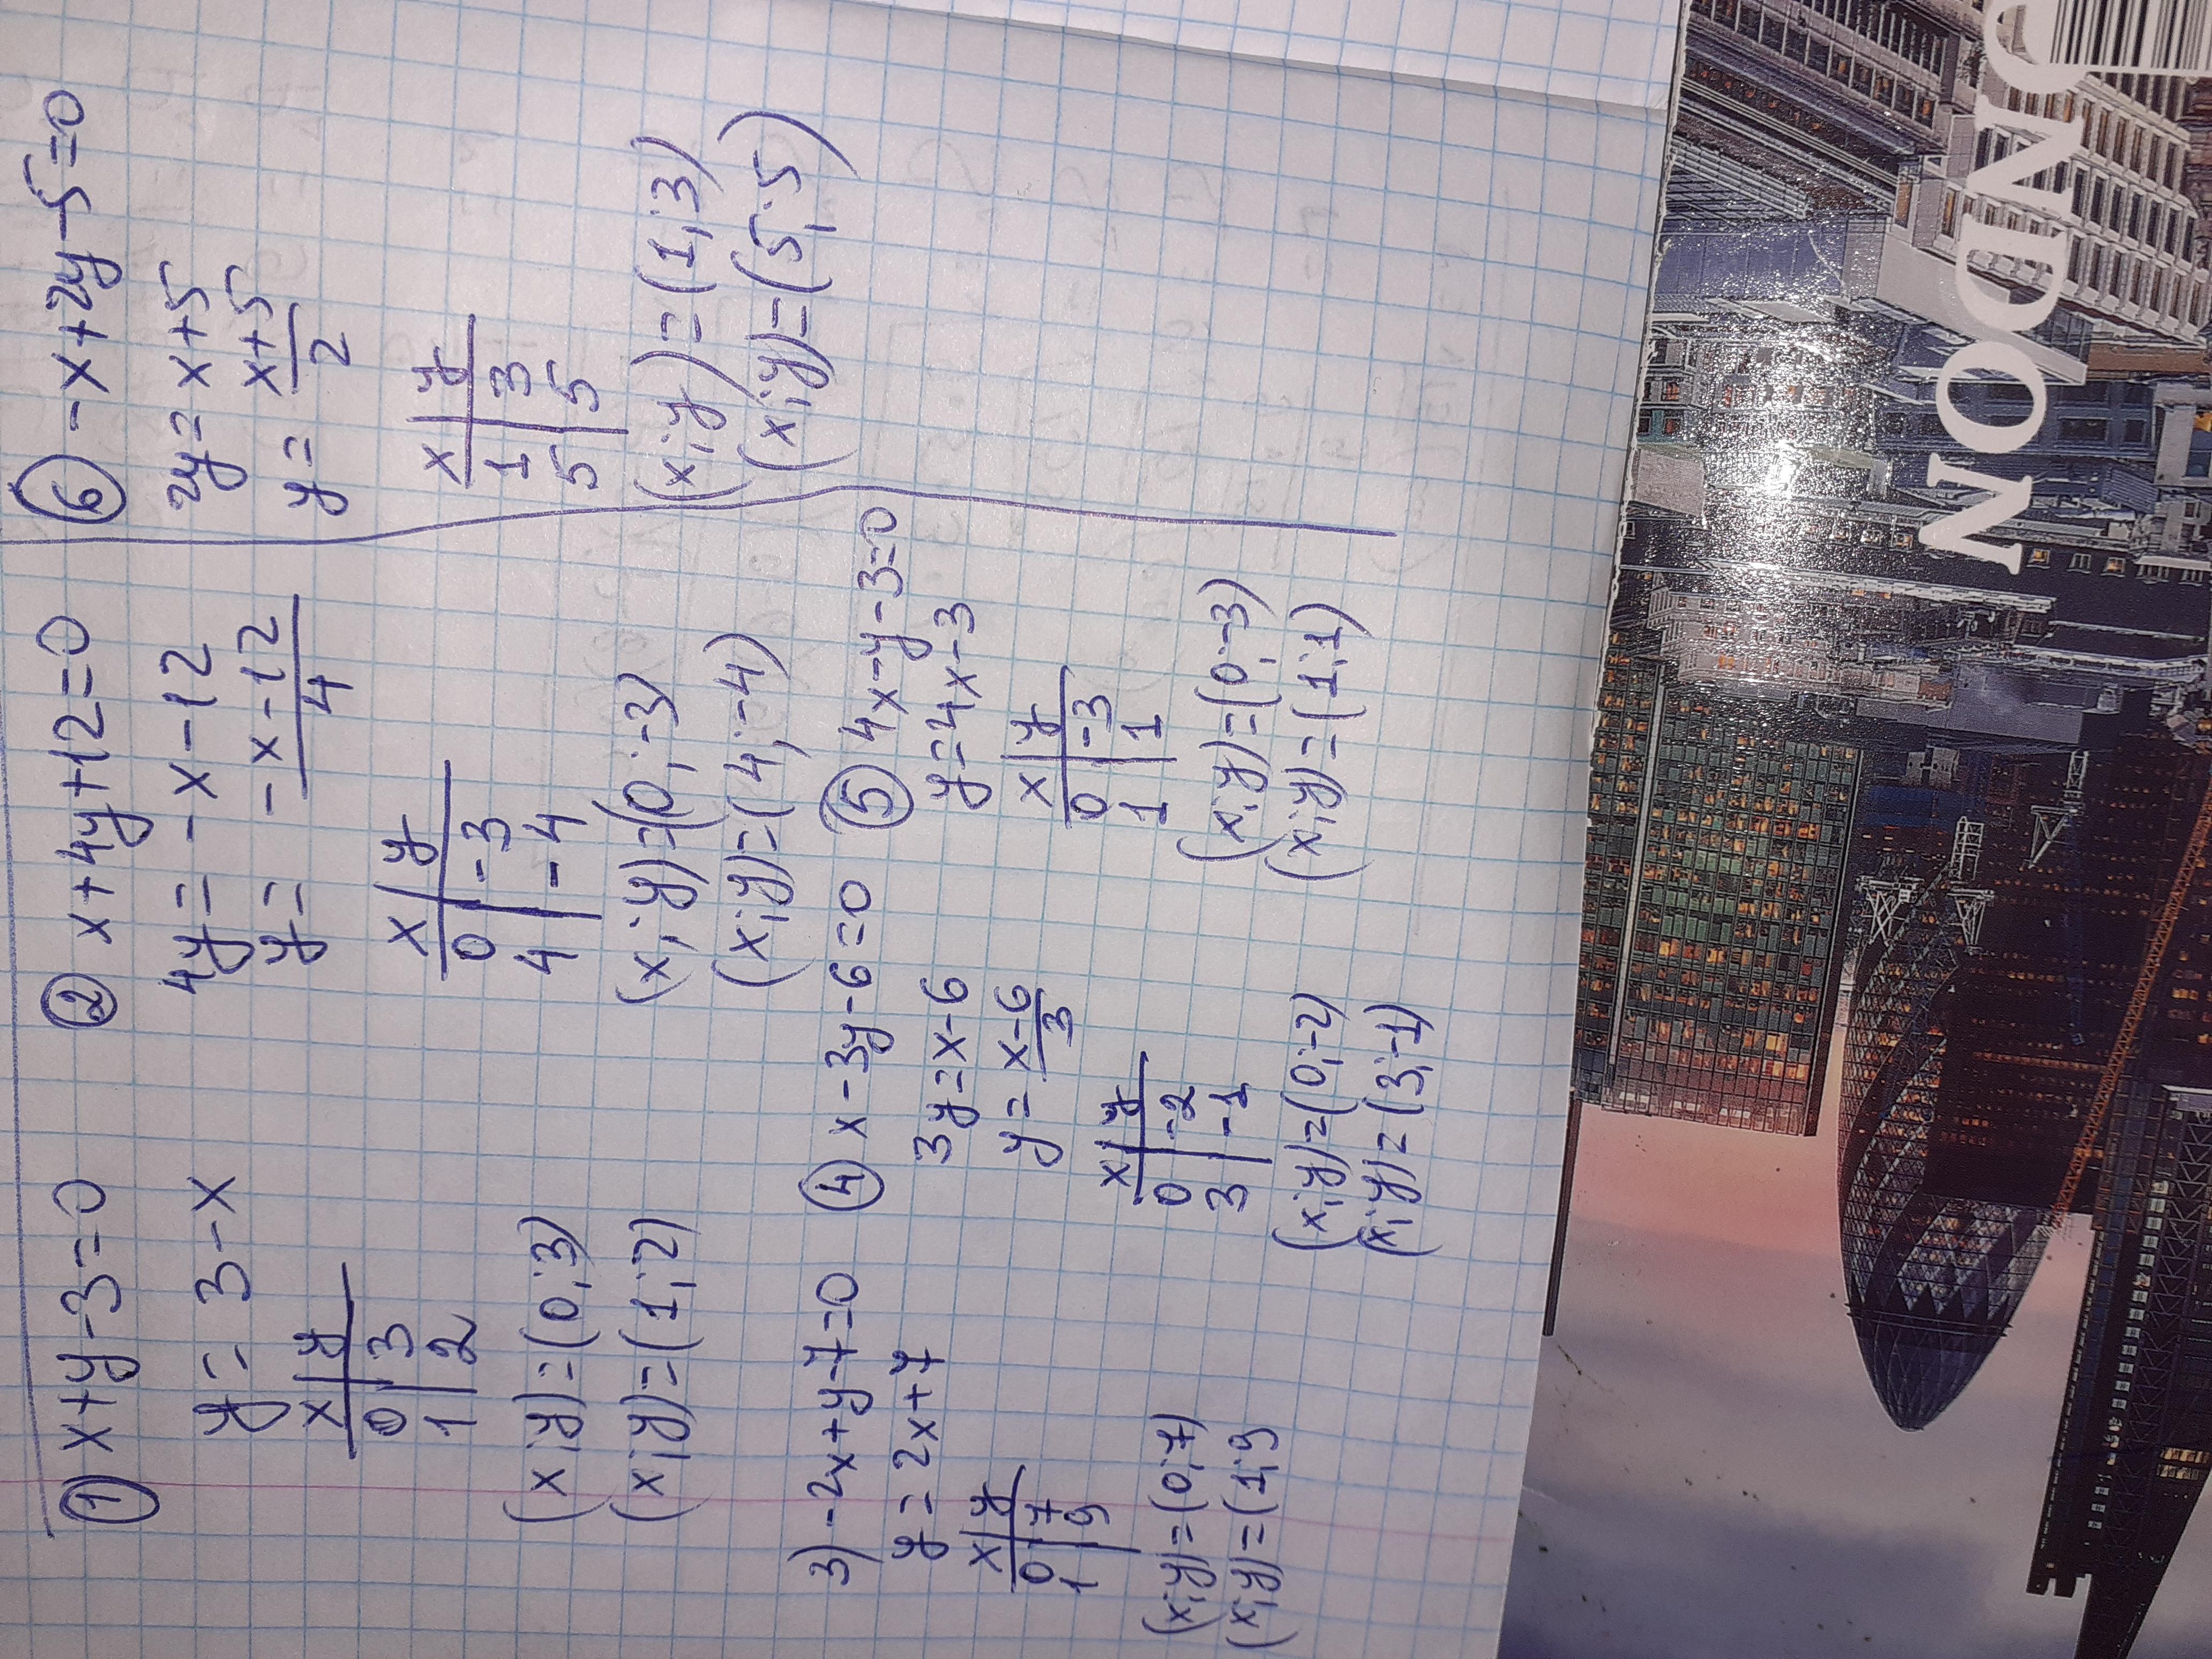 ① x+y-3=0
y=3-x
x | y
0 | 3
1 | 2
(x;y)=(0;3)
(x;y)=(1;2)
② x+4y+12=0
4y=-x-12
y= -x-12
4
x | y
0 | -3
4 | -4
(x;y)=(0;-3)
(x;y)=(4;-4)
3) -2x+y-7=0
y=2x+7
x | y
0 | 7
1 | 9
(x;y)=(0;7)
(x;y)=(1;9
④ x-3y-6=0
3y=x-6
y= x-6
3
x | y
0 | -2
3 | -1
(x;y)=(0;-2)
(x;y)=(3;-1)
⑤ 4x-y-3=0
y=4x-3
x | y
0 | -3
1 | 1
(x;y)=(0;-3)
(x;y)=(1;1)
⑥ -x+2y-5=0
2y=x+5
y= x+5
2
x | y
1 | 3
5 | 5
(x;y)=(1;3)
(x;y)=(5;5)